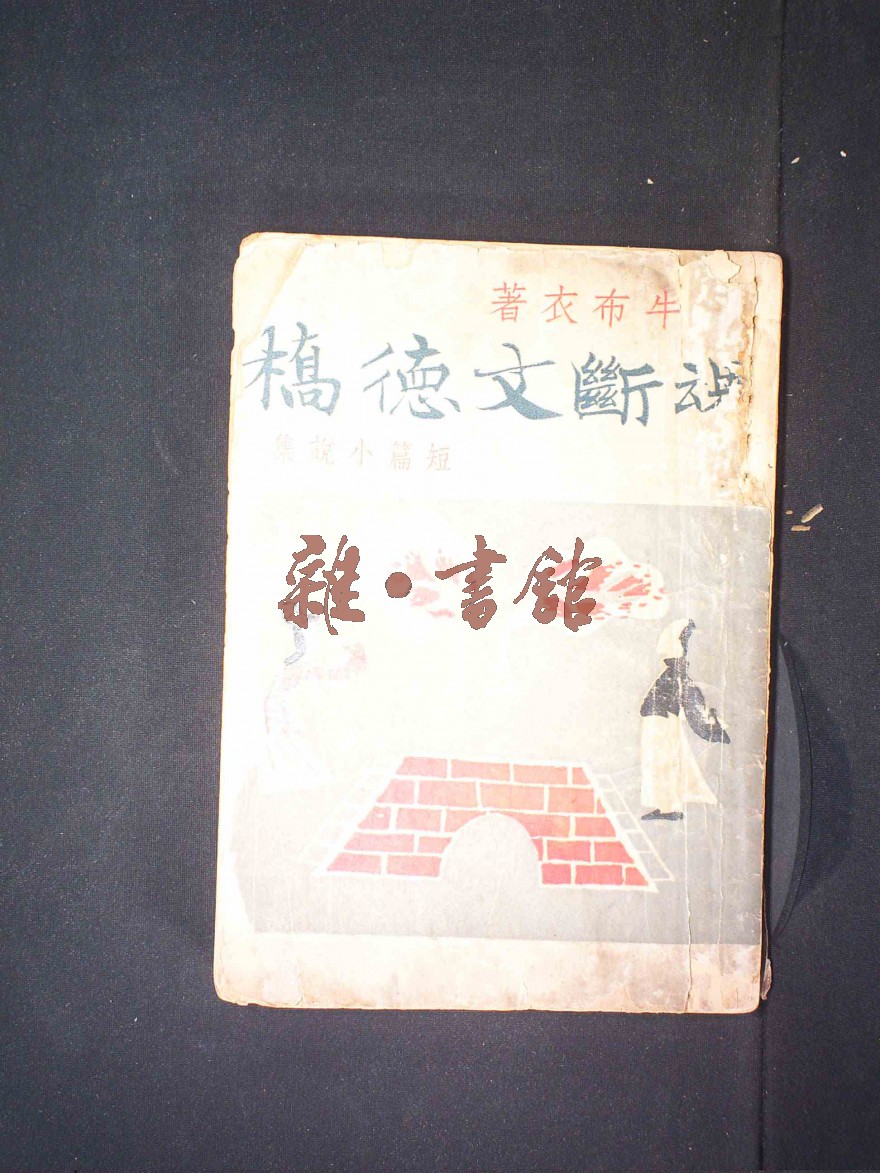 牛布衣著
魂斷文德橋
短篇小說集
雜·書館